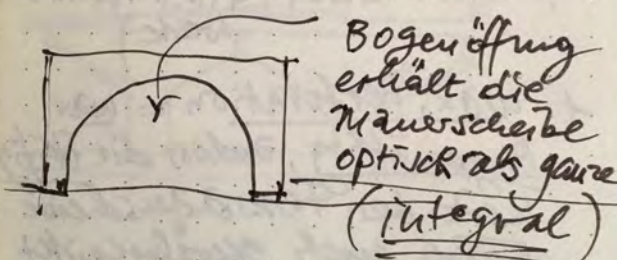 Bogenöffnung
erhält die
Mauerscheibe
optisch als ganze
(integral)